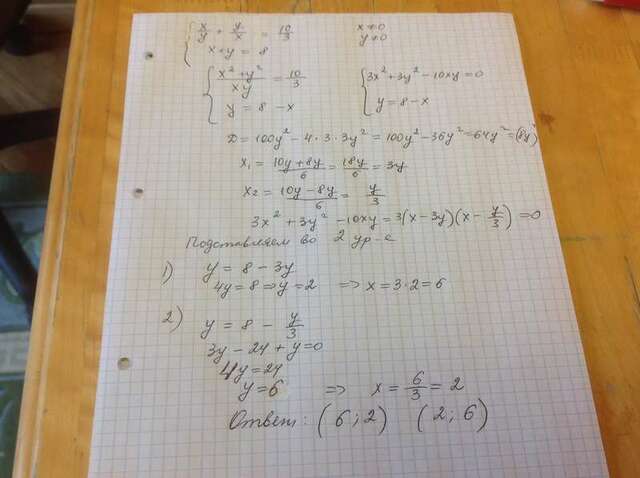 x/y + y/x = 10/3 x≠0
x+y = 8 y≠0
(x² + y²)/(xy) = 10/3 3x²+3y²-10xy=0
y = 8 - x y = 8 - x
D = 100y² - 4·3·3y² = 100y² - 36y² = 64y² = (8y)²
x₁ = (10y + 8y)/6 = 18y/6 = 3y
x₂ = (10y - 8y)/6 = y/3
3x² + 3y² - 10xy = 3(x - 3y)(x - y/3) = 0
Подставляем во 2 ур-е
1) y = 8 - 3y
4y = 8 ⇒ y = 2 ⇒ x = 3·2 = 6
2) y = 8 - y/3
3y - 24 + y = 0
4y = 24
y = 6 ⇒ x = 6/3 = 2
Ответ: (6; 2) (2; 6)